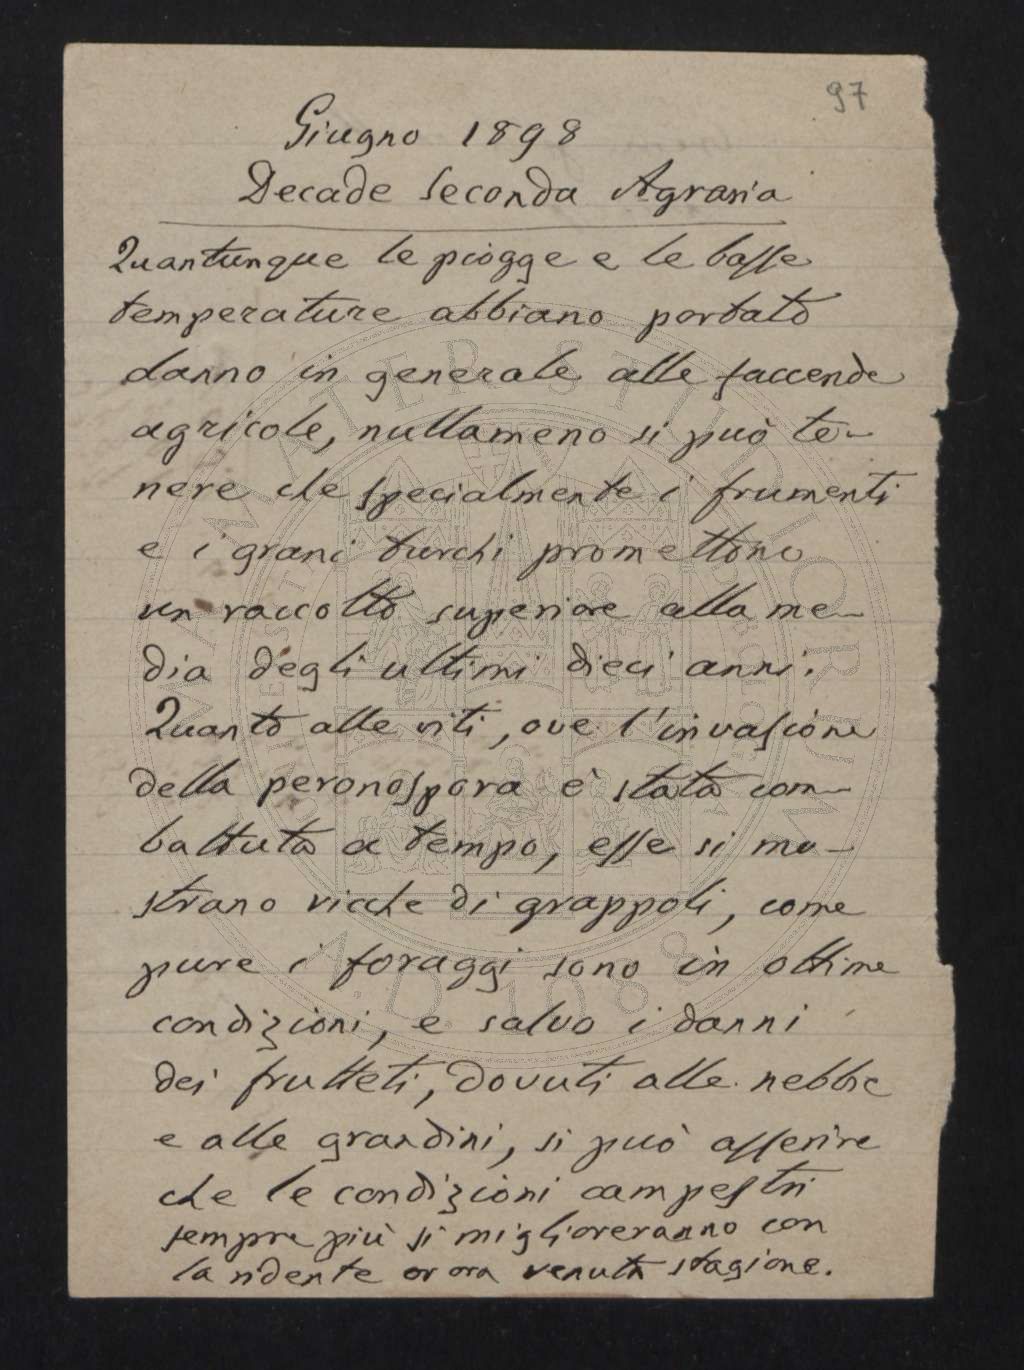 97
Giugno 1898
Decade seconda Agraria
Quantunque le piogge e le basse
temperature abbiano portato
danno in generale alle faccende
agricole, nullameno si può te-
nere che specialmente i frumenti
e i grani turchi promettono
un raccolto superiore alla me-
dia degli ultimi dieci anni.
Quanto alle viti, ove l'invasione
della peronospora è stata com-
battuta a tempo, esse si mo-
strano ricche di grappoli, come
pure i foraggi sono in ottime
condizioni, e salvo i danni
dei frutteti, dovuti alle nebbie
e alle grandini, si può asserire
che le condizioni campestri
sempre più si miglioreranno con
la ridente or ora venuta stagione.